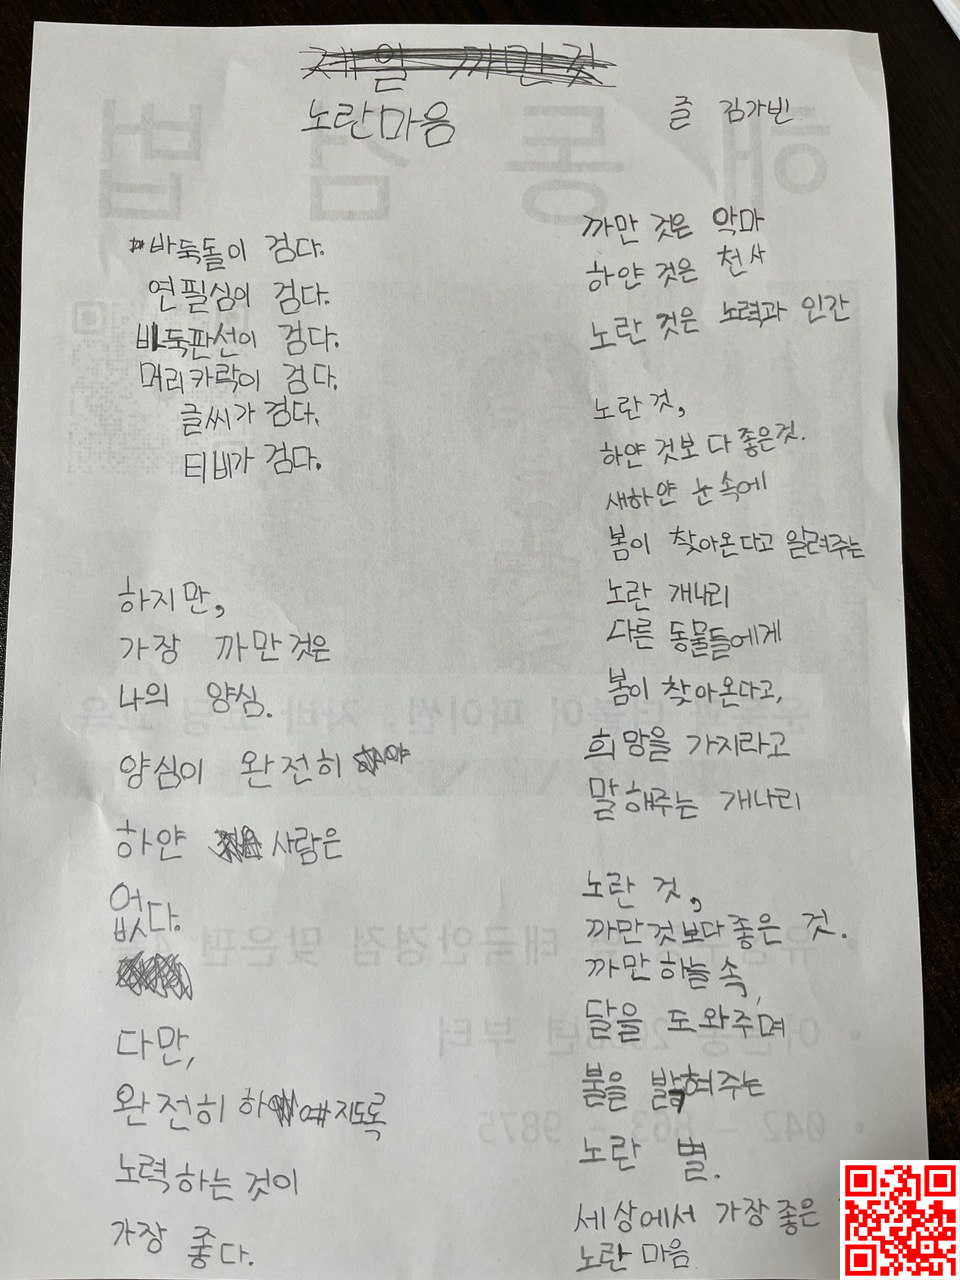 노란마음
글 김가빈
바둑돌이 검다.
연필심이 검다.
바둑판선이 검다.
머리카락이 검다.
글씨가 검다.
티비가 검다.
하지만,
가장 까만것은
나의 양심.
양심이 완전히
하얀 사람은
없다.
다만,
완전히 하얘지도록
노력하는 것이
가장 좋다.
까만 것은 악마
하얀 것은 천사
노란 것은 노력과 인간
노란 것,
하얀 것보다 좋은것.
새하얀 눈속에
봄이 찾아온다고 알려주는
노란 개나리
다른 동물들에게
봄이 찾아온다고,
희망을 가지라고
말해주는 개나리
노란 것,
까만것보다 좋은 것.
까만 하늘 속,
달을 도와주며
불을 밝혀주는
노란 별.
세상에서 가장 좋은
노란 마음